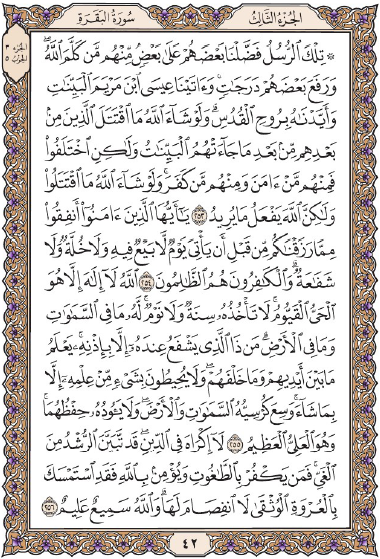 الجزء الثالث
سورة البقرة
الجزء ٣
الحزب ٥
۞ تِلْكَ ٱلرُّسُلُ فَضَّلْنَا بَعْضَهُمْ عَلَىٰ بَعْضٍ مِّنْهُم مَّن كَلَّمَ ٱللَّهُ
وَرَفَعَ بَعْضَهُمْ دَرَجَٰتٍ وَءَاتَيْنَا عِيسَى ٱبْنَ مَرْيَمَ ٱلْبَيِّنَٰتِ
وَأَيَّدْنَٰهُ بِرُوحِ ٱلْقُدُسِ وَلَوْ شَآءَ ٱللَّهُ مَا ٱقْتَتَلَ ٱلَّذِينَ مِنۢ
بَعْدِهِم مِّنۢ بَعْدِ مَا جَآءَتْهُمُ ٱلْبَيِّنَٰتُ وَلَٰكِنِ ٱخْتَلَفُوا۟
فَمِنْهُم مَّنْ ءَامَنَ وَمِنْهُم مَّن كَفَرَ وَلَوْ شَآءَ ٱللَّهُ مَا ٱقْتَتَلُوا۟
وَلَٰكِنَّ ٱللَّهَ يَفْعَلُ مَا يُرِيدُ ٢٥٣ يَٰٓأَيُّهَا ٱلَّذِينَ ءَامَنُوٓا۟ أَنفِقُوا۟
مِمَّا رَزَقْنَٰكُم مِّن قَبْلِ أَن يَأْتِىَ يَوْمٌ لَّا بَيْعٌ فِيهِ وَلَا خُلَّةٌ وَلَا
شَفَٰعَةٌ وَٱلْكَٰفِرُونَ هُمُ ٱلظَّٰلِمُونَ ٢٥٤ ٱللَّهُ لَآ إِلَٰهَ إِلَّا هُوَ
ٱلْحَىُّ ٱلْقَيُّومُ لَا تَأْخُذُهُۥ سِنَةٌ وَلَا نَوْمٌ لَّهُۥ مَا فِى ٱلسَّمَٰوَٰتِ
وَمَا فِى ٱلْأَرْضِ مَن ذَا ٱلَّذِى يَشْفَعُ عِندَهُۥٓ إِلَّا بِإِذْنِهِۦ يَعْلَمُ
مَا بَيْنَ أَيْدِيهِمْ وَمَا خَلْفَهُمْ وَلَا يُحِيطُونَ بِشَىْءٍ مِّنْ عِلْمِهِۦٓ إِلَّا
بِمَا شَآءَ وَسِعَ كُرْسِيُّهُ ٱلسَّمَٰوَٰتِ وَٱلْأَرْضَ وَلَا يَـُٔودُهُۥ حِفْظُهُمَا
وَهُوَ ٱلْعَلِىُّ ٱلْعَظِيمُ ٢٥٥ لَآ إِكْرَاهَ فِى ٱلدِّينِ قَد تَّبَيَّنَ ٱلرُّشْدُ مِنَ
ٱلْغَىِّ فَمَن يَكْفُرْ بِٱلطَّٰغُوتِ وَيُؤْمِنۢ بِٱللَّهِ فَقَدِ ٱسْتَمْسَكَ
بِٱلْعُرْوَةِ ٱلْوُثْقَىٰ لَا ٱنفِصَامَ لَهَا وَٱللَّهُ سَمِيعٌ عَلِيمٌ ٢٥٦
٤٢